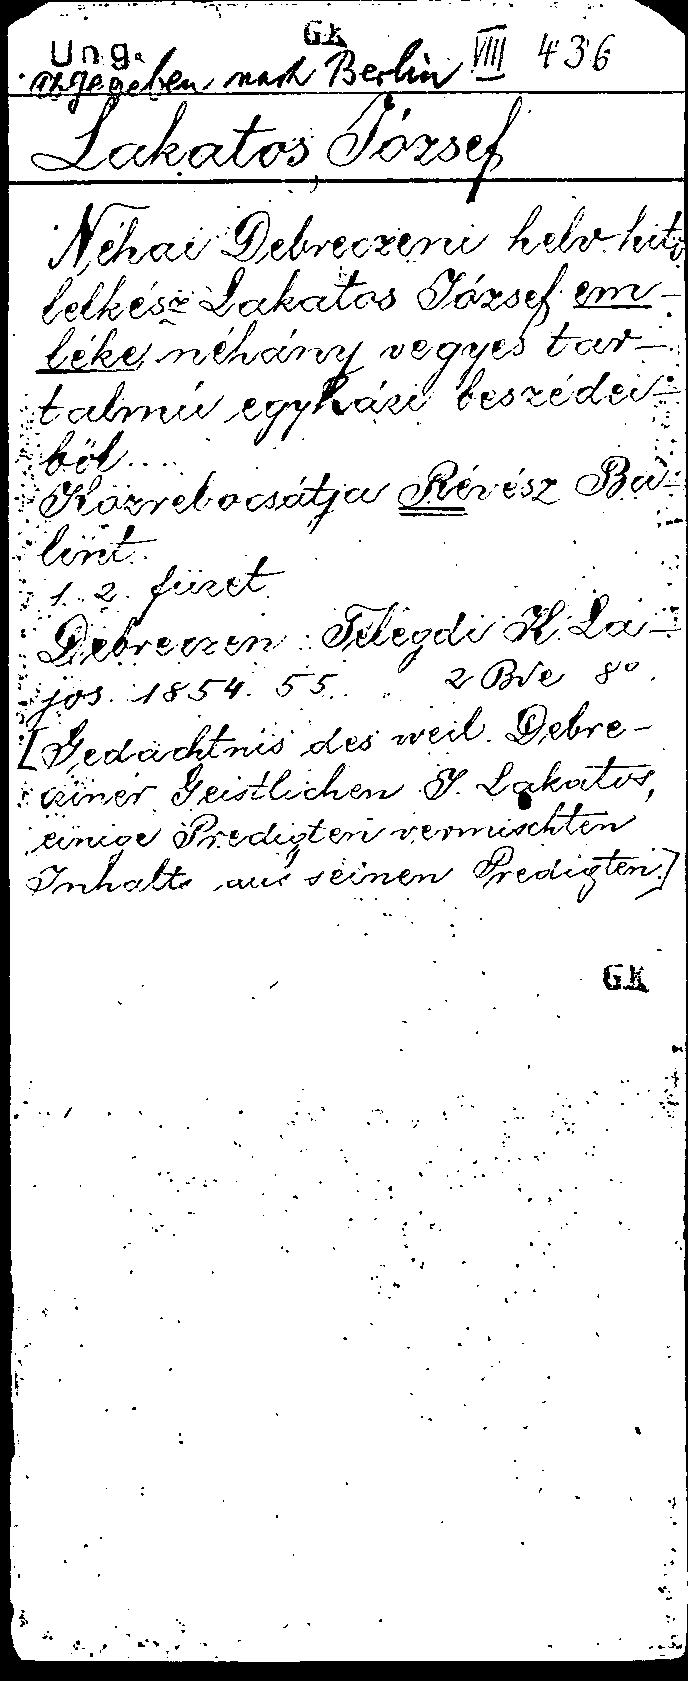 G.K
Ung. VIII 436
abgegeben nach Berlin
Lakatos, József
Néhai Debreczeni helv. hitv.
lelkész Lakatos József em-
léke néhány vegyes tar-
talmú egyházi beszédei-
ből...
Közrebocsátja Révész Bá-
lint.
1. 2. füzet.
Debreczen: Telegdi K. La-
jos. 1854. 55. 2 Bde 8°.
[Gedächtnis des weil. Debre-
cziner Geistlichen J. Lakatos,
einige Predigten vermischten
Inhalts aus seinen Predigten.]
G.K